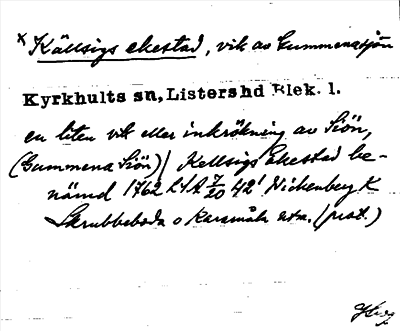 x Källsigs ekestad, vik av Gummenasjön
Kyrkhults sn, Listers hd Blek. l.
en liten vik eller inkrökning av Siön,
(Gummena Siön)/ Kellsigs Ekestad be-
nämd 1762 LSA 7/20 42' Nickenberg K
Skrubbeboda o Karamåla utm. (just.)